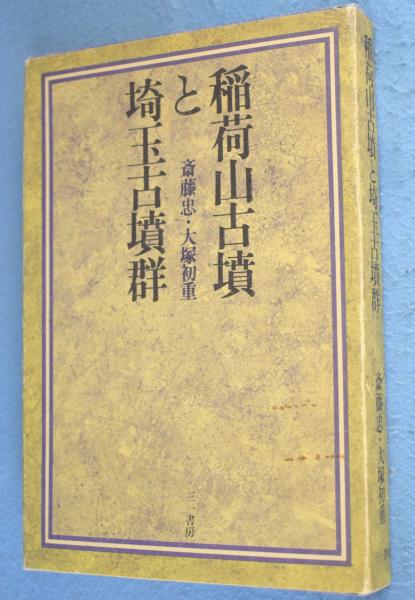 稲荷山古墳
と
埼玉古墳群
斎藤忠・大塚初重
三一書房
稲荷山古墳と埼玉古墳群
斎藤忠・大塚初重